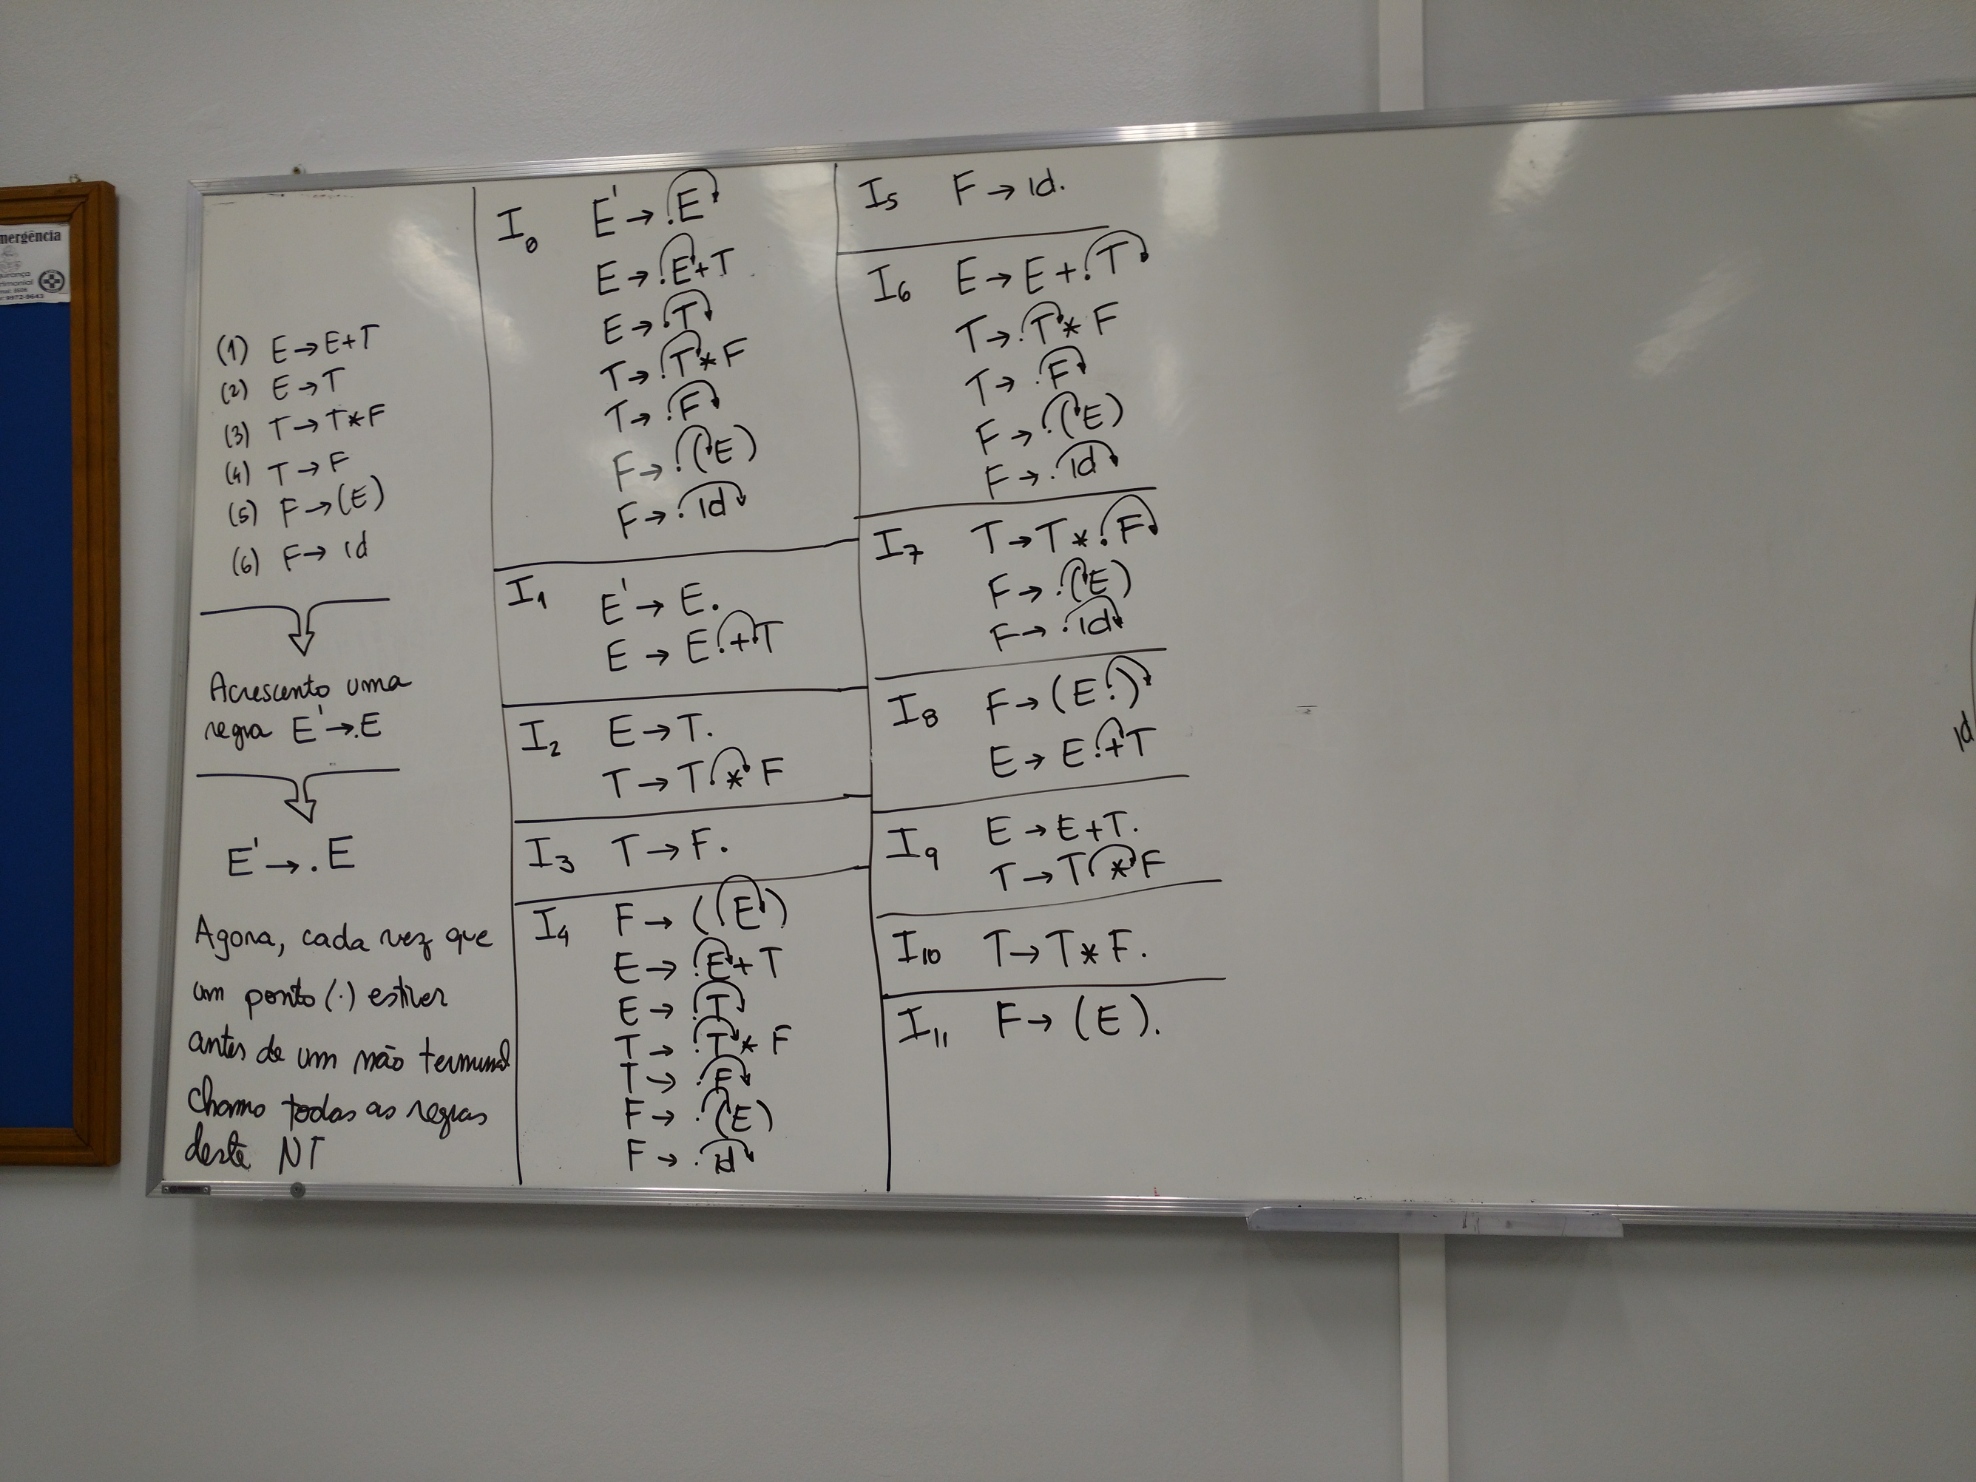 mergência
(1) E → E+T
(2) E → T
(3) T → T*F
(4) T → F
(5) F → (E)
(6) F → id
Acrescento uma
regra E' → .E
E' → .E
Agora, cada vez que
um ponto (.) estiver
antes de um não terminal
chamo todas as regras
deste NT
I0 E' → .E
E → .E+T
E → .T
T → .T*F
T → .F
F → .(E)
F → .id
I1 E' → E.
E → E.+T
I2 E → T.
T → T.*F
I3 T → F.
I4 F → (.E)
E → .E+T
E → .T
T → .T*F
T → .F
F → .(E)
F → .id
I5 F → id.
I6 E → E+.T
T → .T*F
T → .F
F → .(E)
F → .id
I7 T → T*.F
F → .(E)
F → .id
I8 F → (E.)
E → E.+T
I9 E → E+T.
T → T.*F
I10 T → T*F.
I11 F → (E).
id